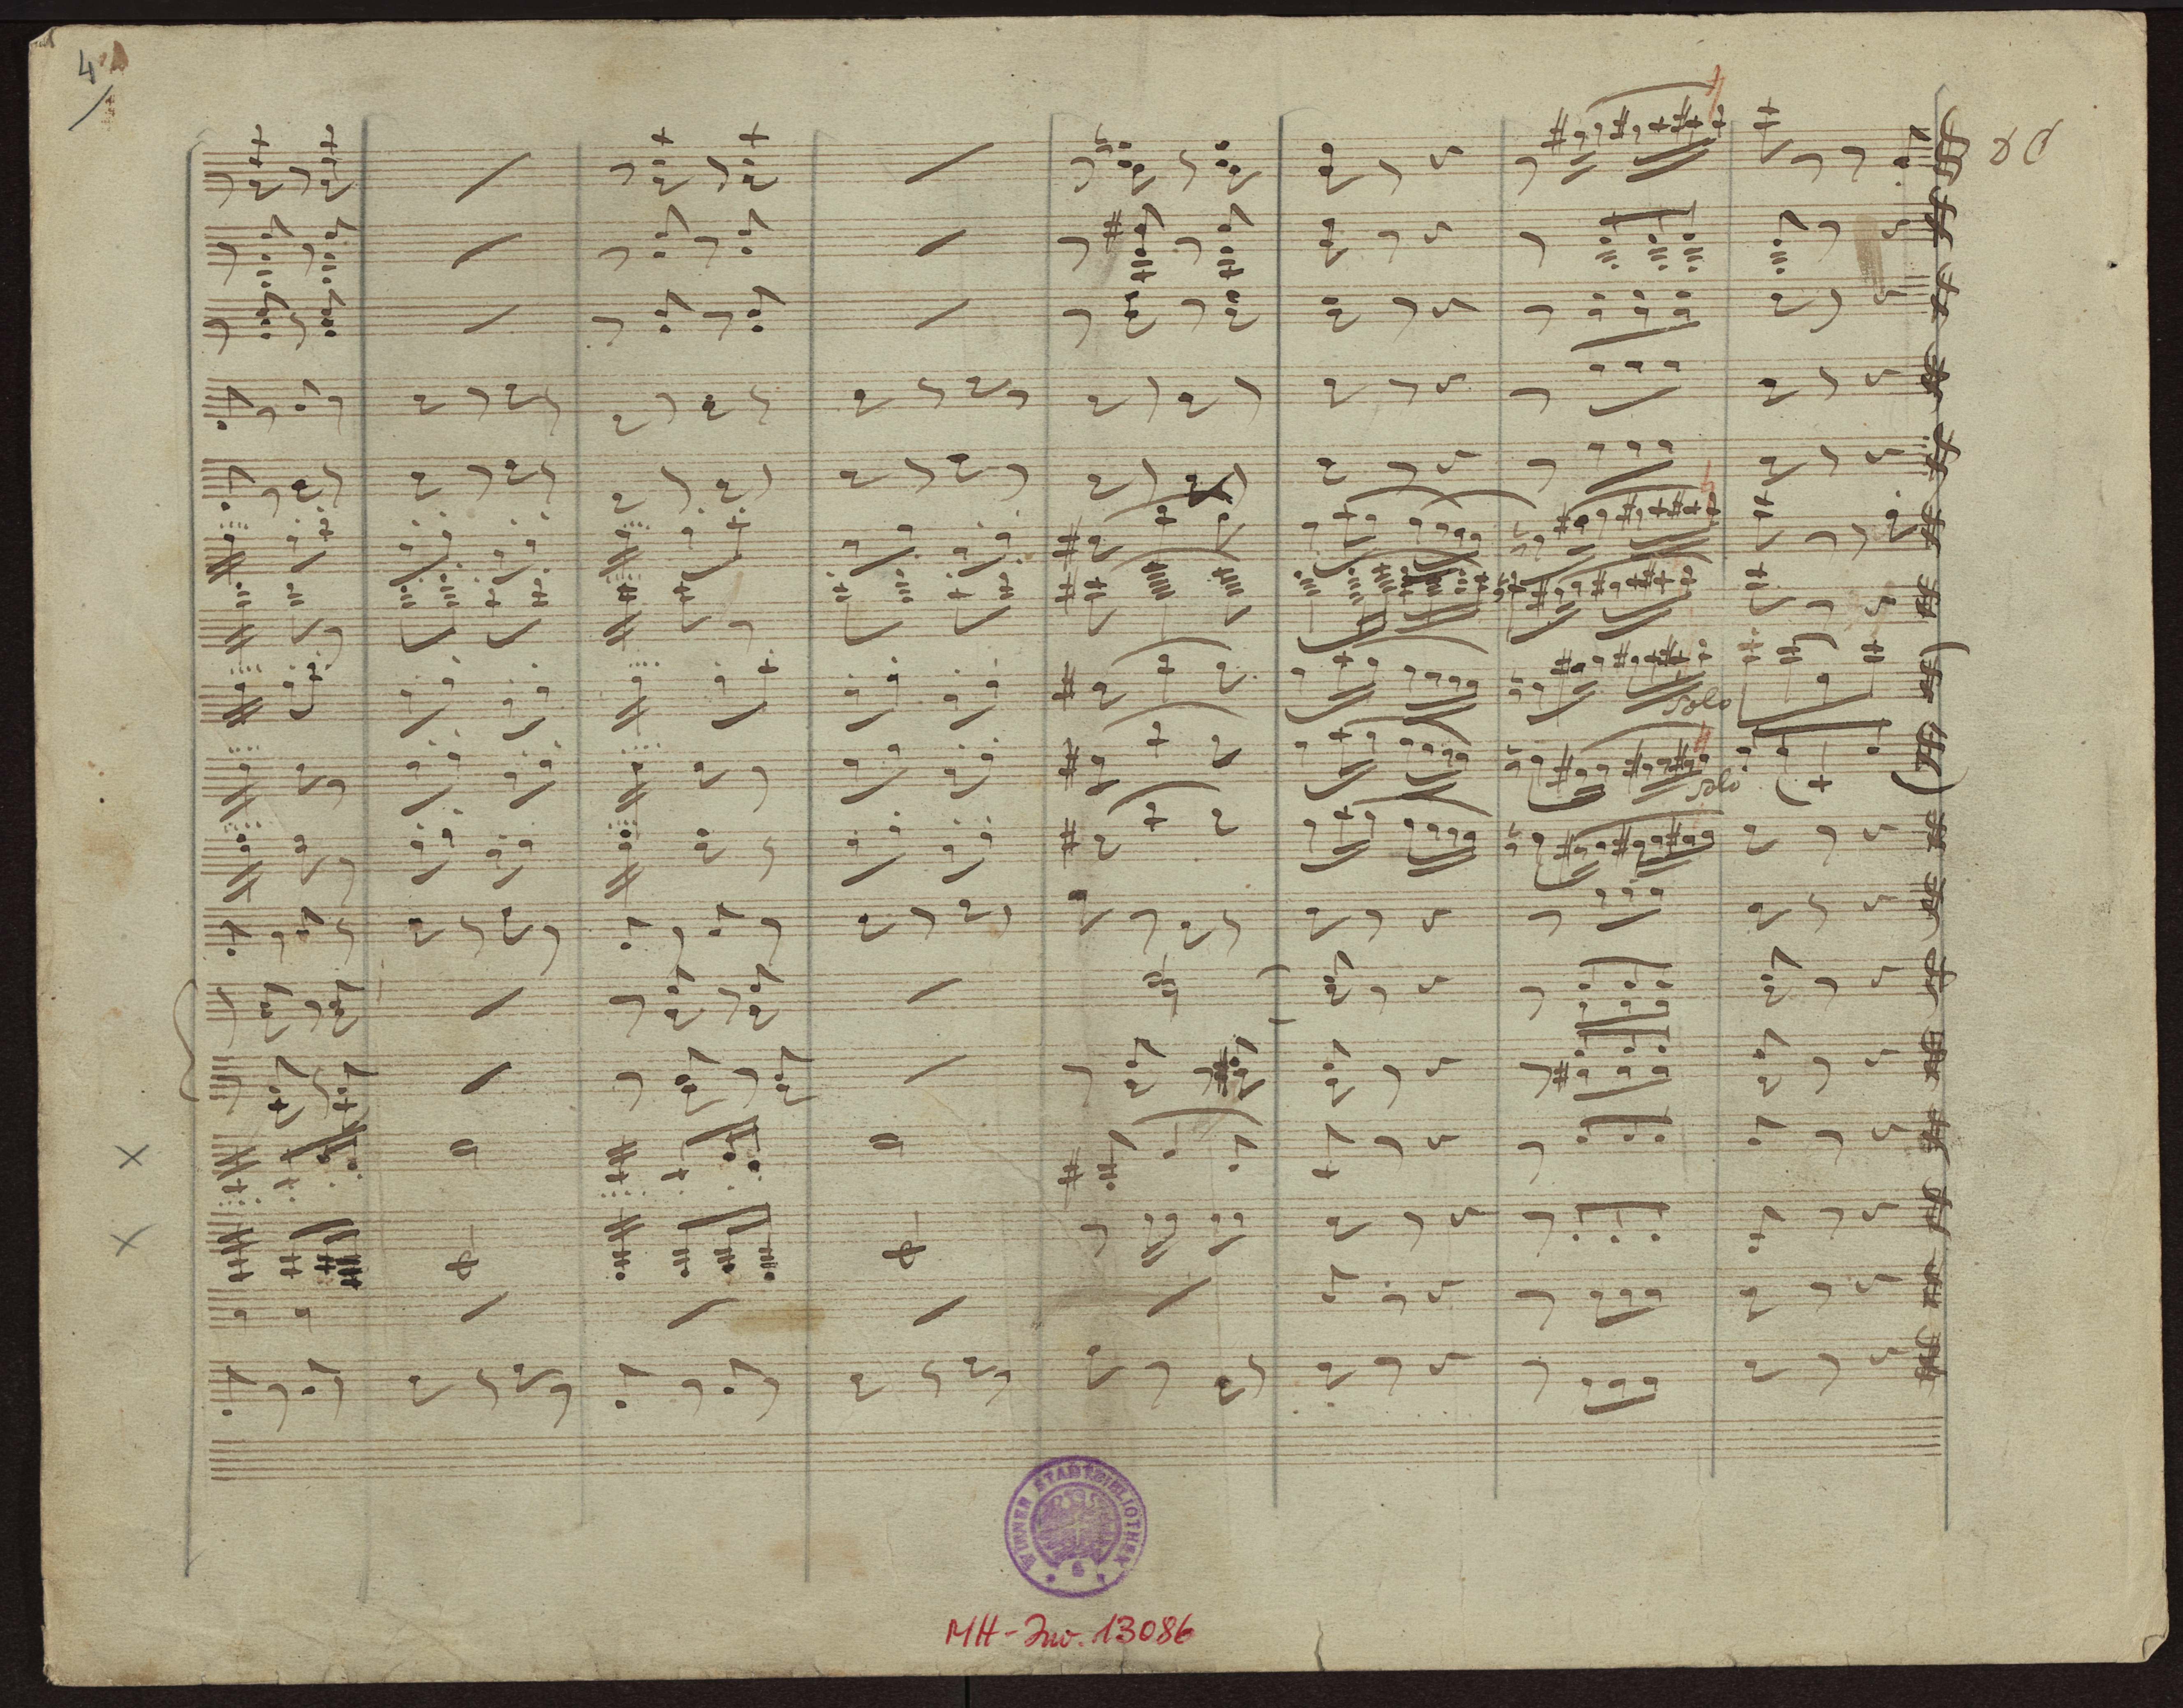 4
solo
solo
WIENER STADTBIBLIOTHEK
MH-Inv. 13086